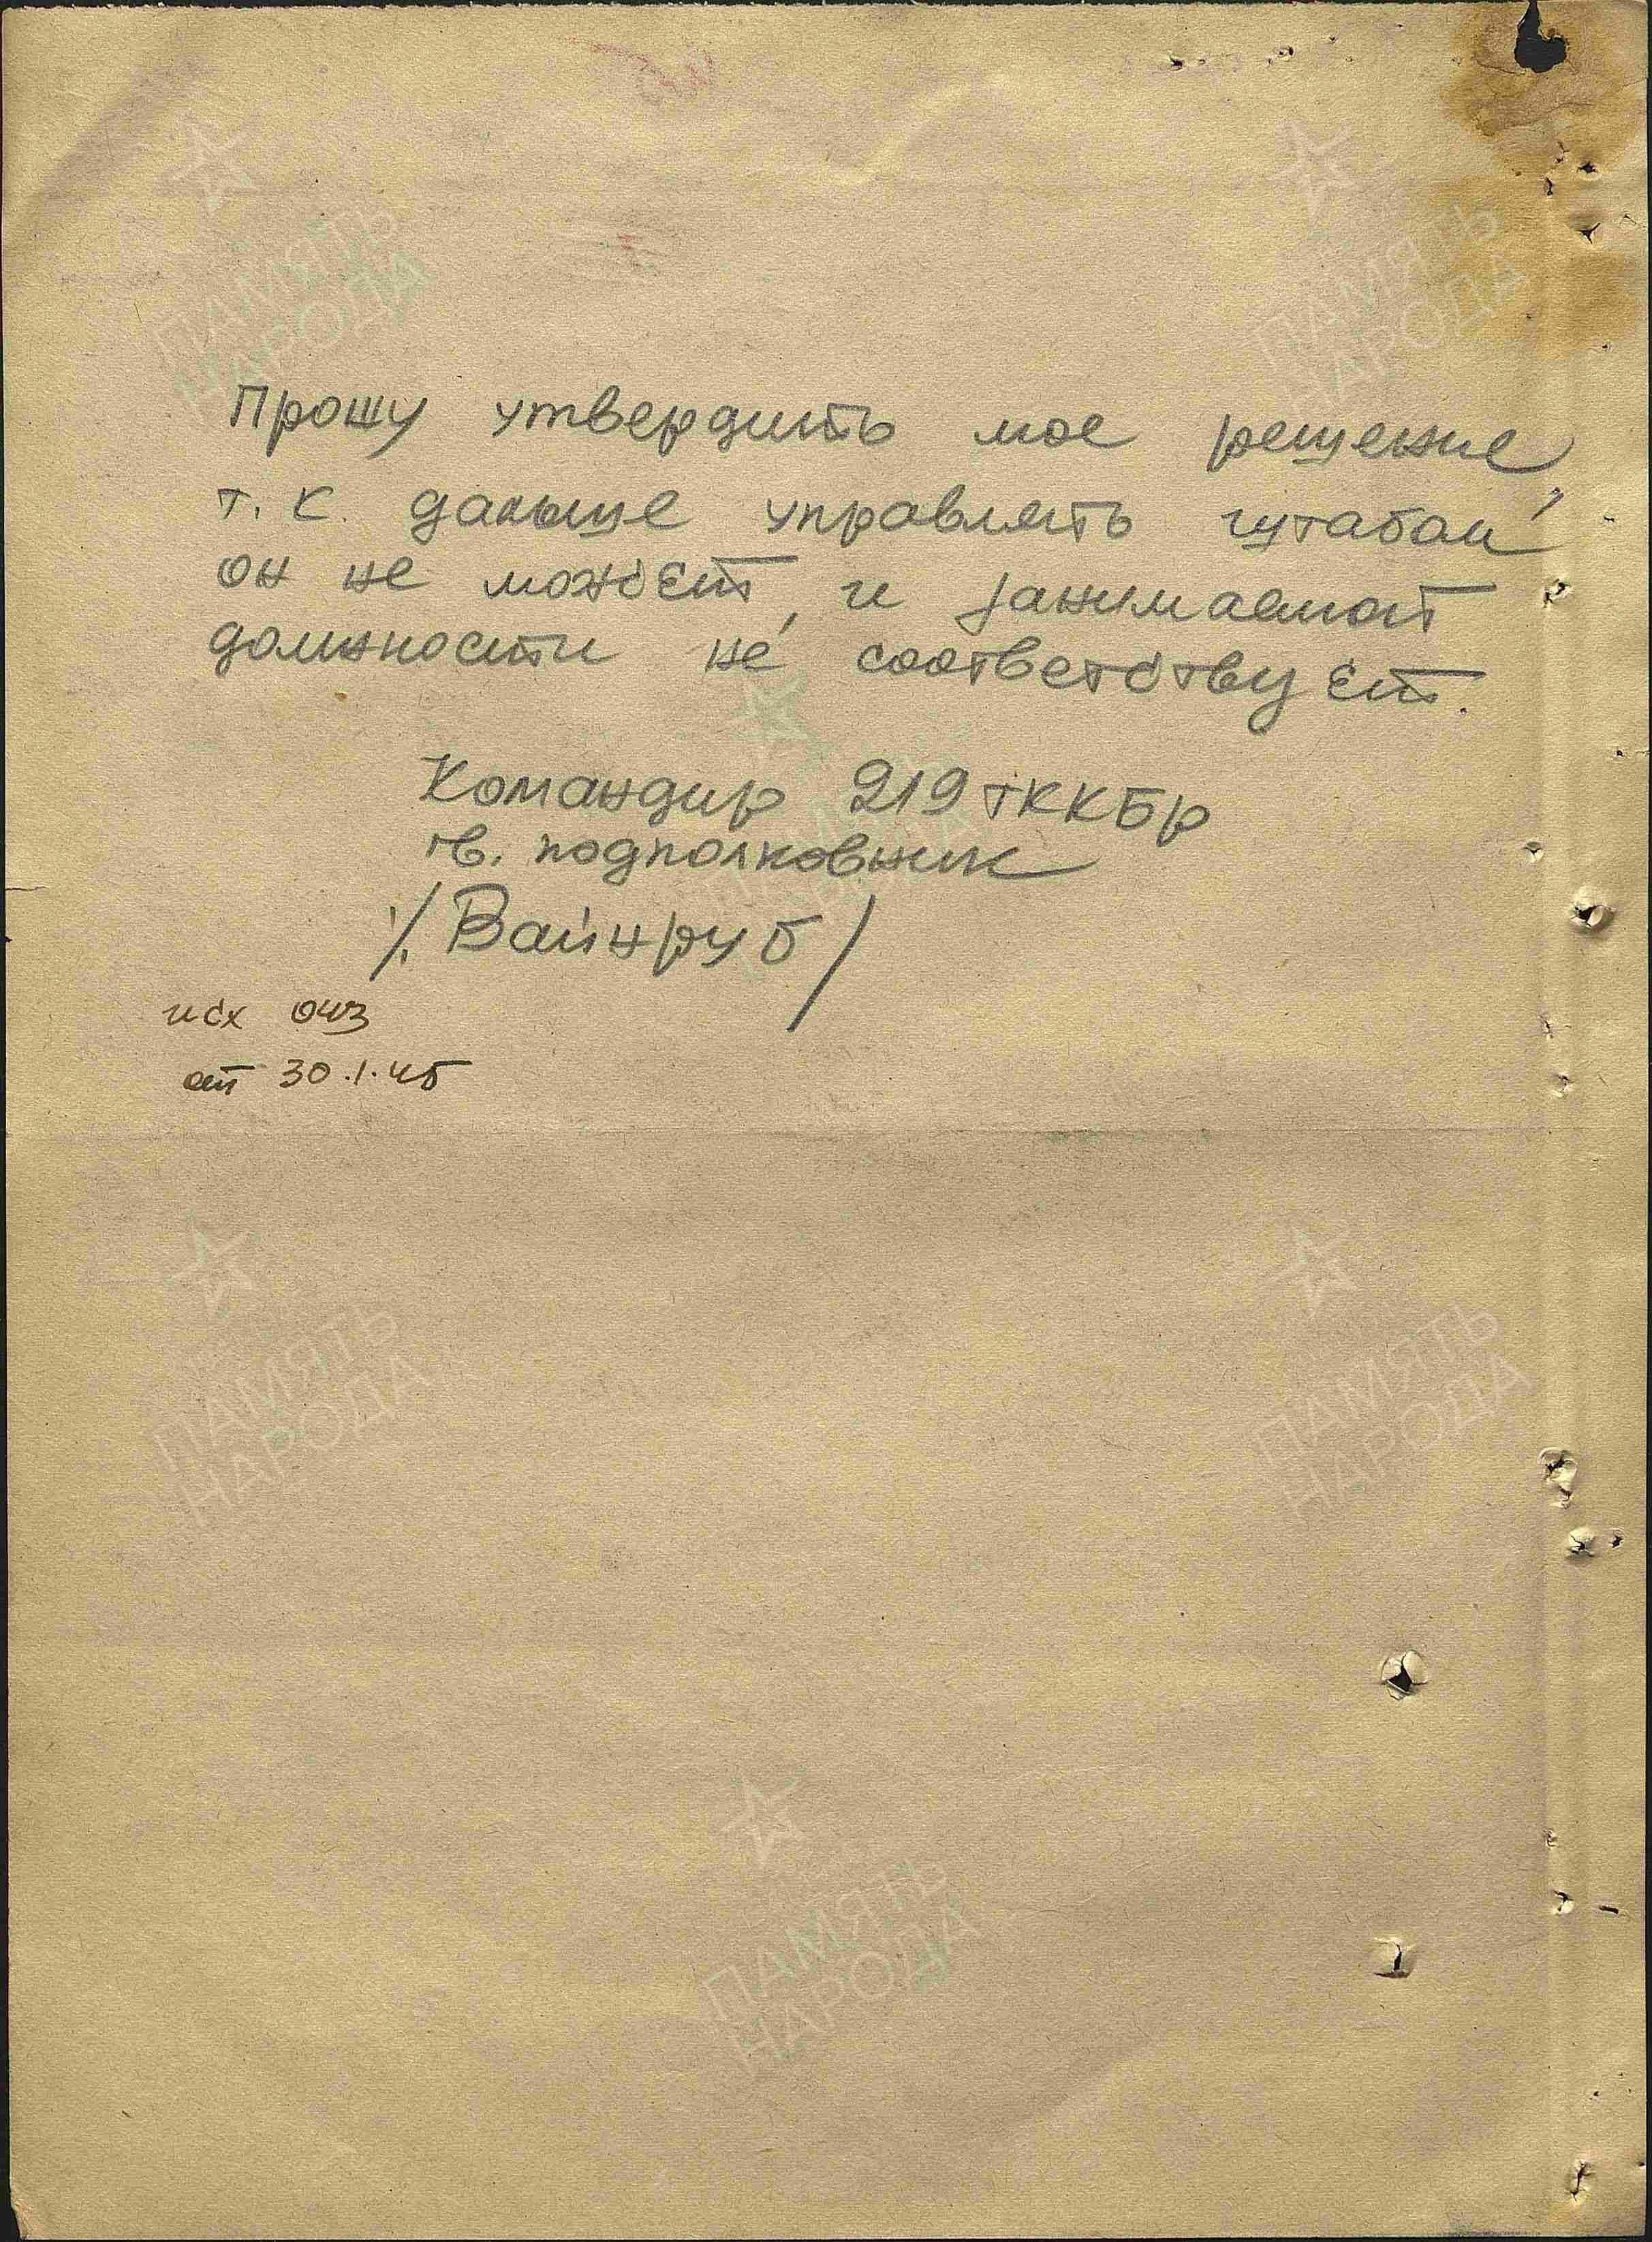 Прошу утвердить мое решение,
т.к. дальше управлять штабом
он не может, и занимаемой
должности не соответствует.
Командир 219 ТККБр
гв. подполковник
/Вайнруб/
исх 043
от 30.1.45
ПАМЯТЬ
НАРОДА